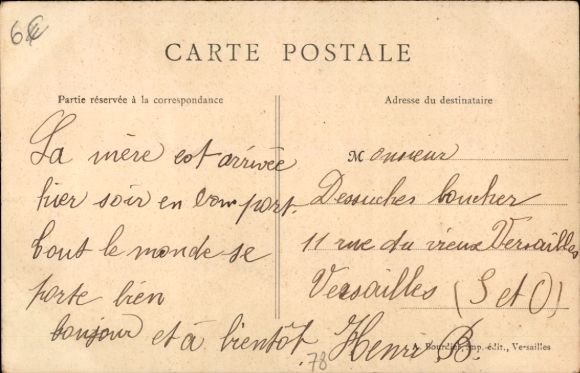 6€
CARTE POSTALE
Partie réservée à la correspondance
La mère est arrivée
hier soir en bon port.
tout le monde se
porte bien
bonjour et à bientôt.
Henri B.
Adresse du destinataire
Monsieur
Dessuches boucher
11 rue du vieux Versailles
Versailles (S et O)
78
A. Bourdier, Imp.-édit., Versailles